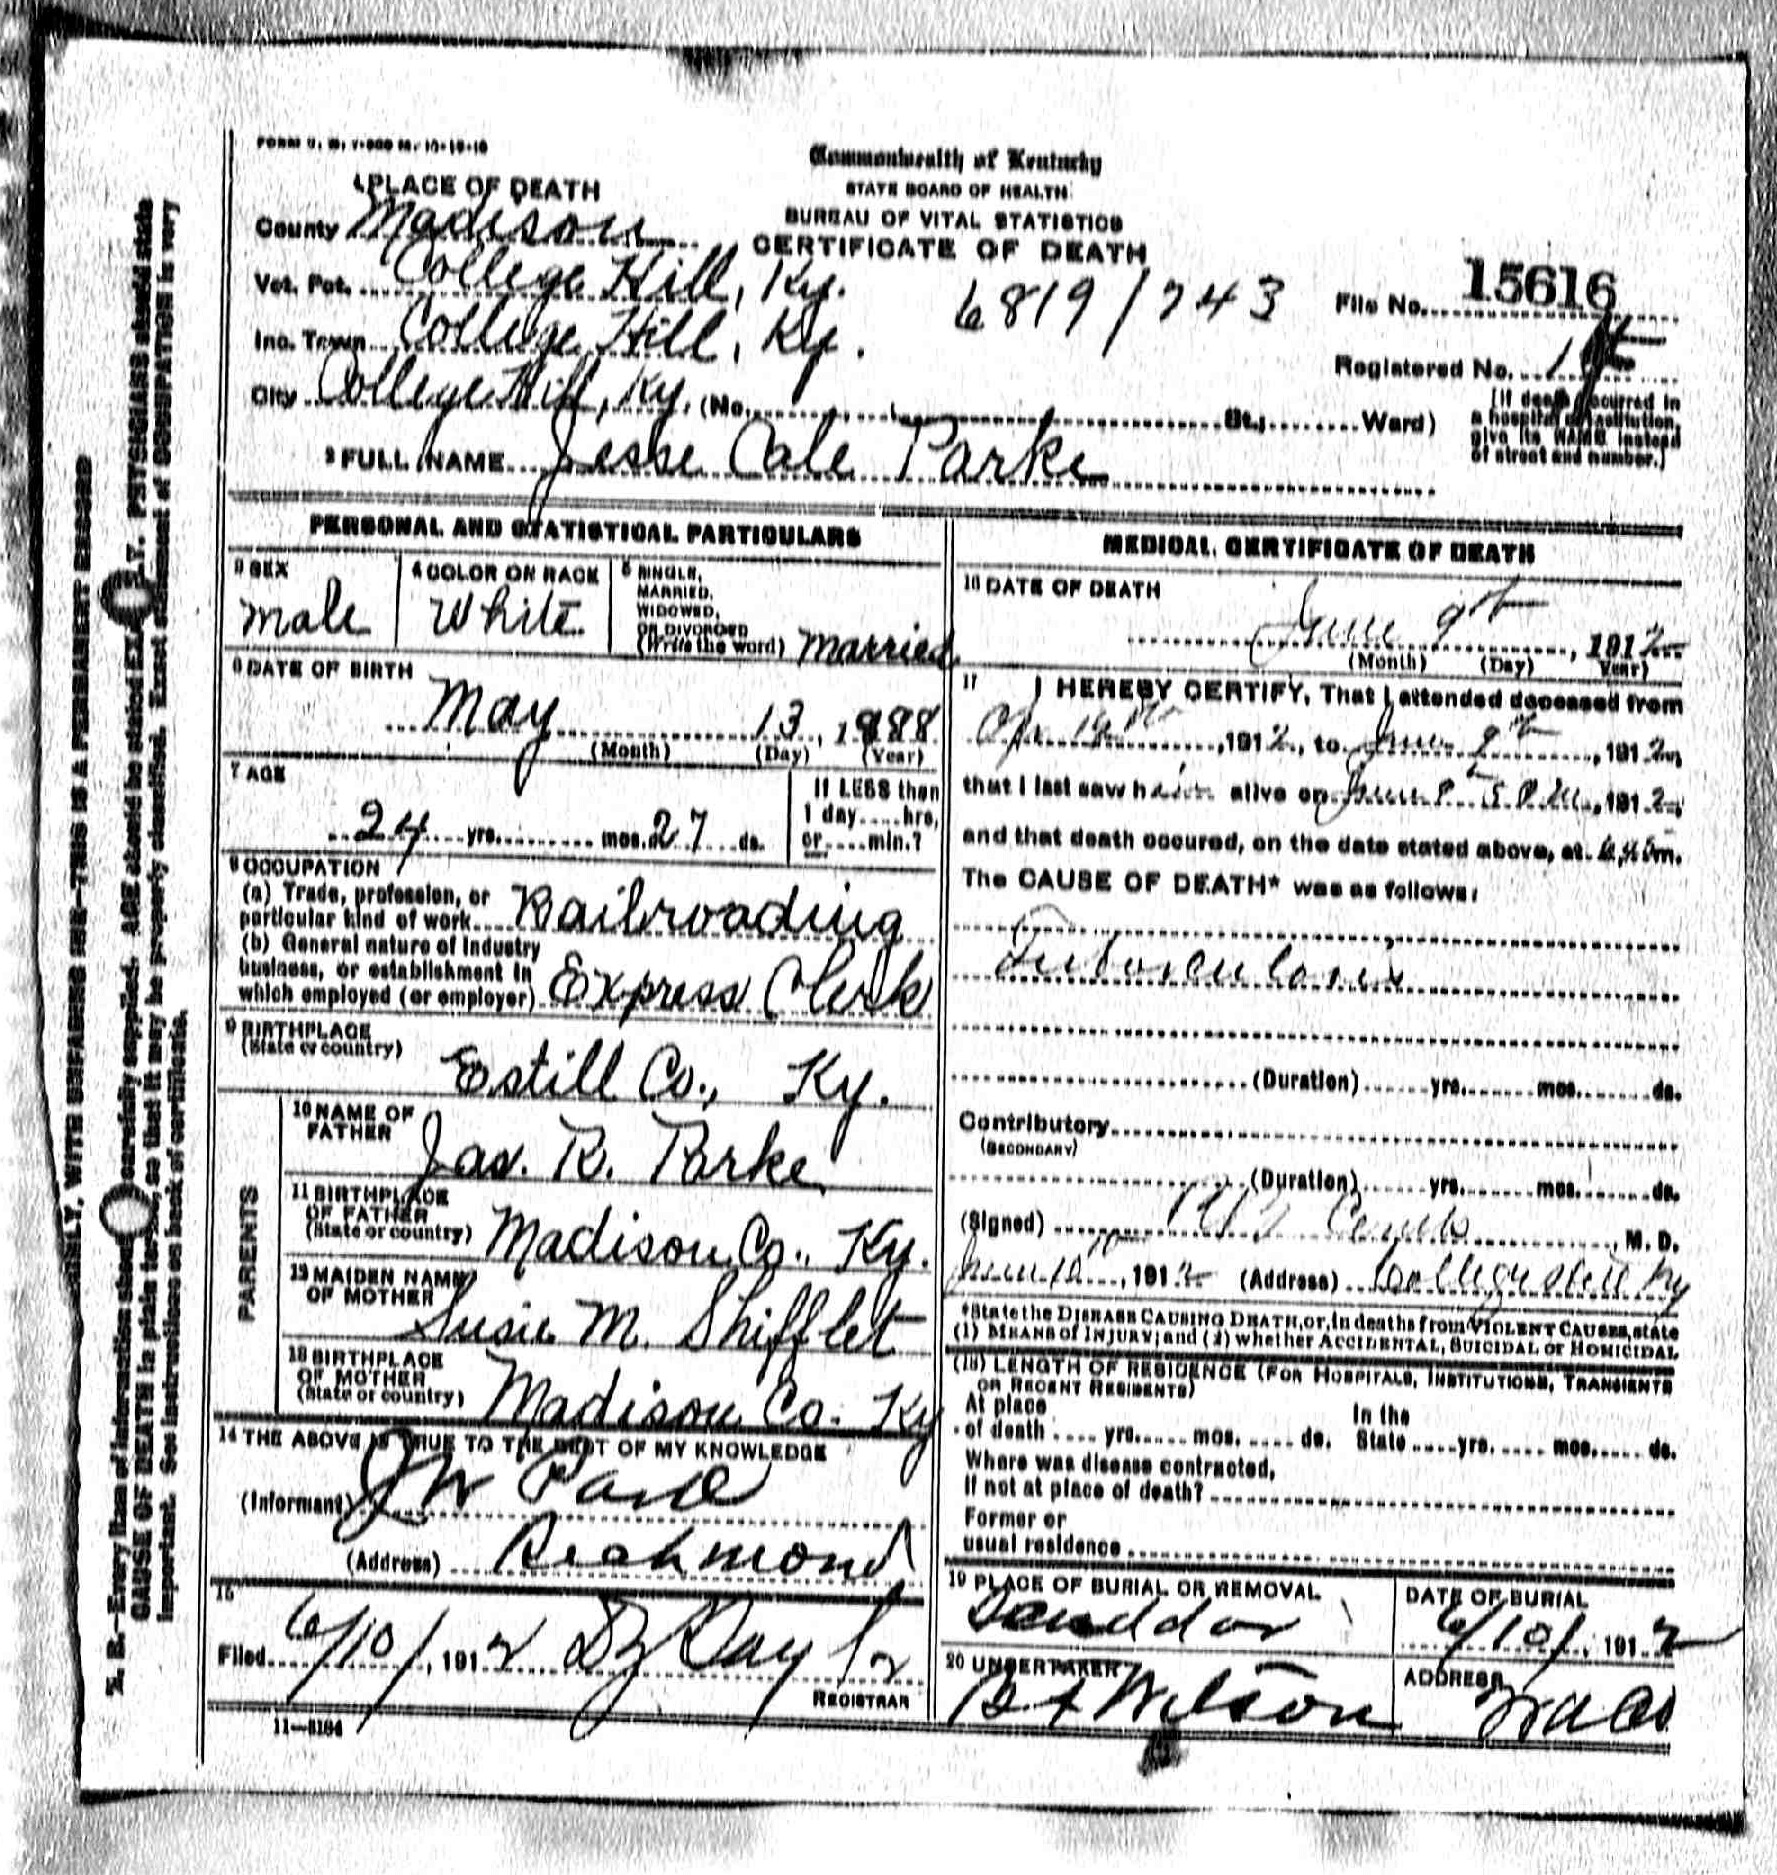 Commonwealth of Kentucky
STATE BOARD OF HEALTH
BUREAU OF VITAL STATISTICS
CERTIFICATE OF DEATH
1 PLACE OF DEATH
County Madison
Vot. Pct. College Hill, Ky.
Inc. Town College Hill, Ky.
City College Hill, Ky. (No. St.; Ward)
6819/743
File No. 15616
Registered No.
(If death occurred in a hospital or institution, give its NAME instead of street and number.)
2 FULL NAME Jesse Cale Parke
PERSONAL AND STATISTICAL PARTICULARS
3 SEX
Male
4 COLOR OR RACE
White
5 SINGLE, MARRIED, WIDOWED, OR DIVORCED (Write the word) Married
6 DATE OF BIRTH
May 13, 1888
(Month) (Day) (Year)
7 AGE
24 yrs. mos. 27 ds.
If LESS than 1 day hrs. or min.?
8 OCCUPATION
(a) Trade, profession, or particular kind of work Railroading
(b) General nature of industry business, or establishment in which employed (or employer) Express Clerk
9 BIRTHPLACE (State or country)
Estill Co., Ky.
PARENTS
10 NAME OF FATHER
Jas. R. Parke
11 BIRTHPLACE OF FATHER (State or country) Madison Co., Ky.
12 MAIDEN NAME OF MOTHER
Susie M. Shifflet
13 BIRTHPLACE OF MOTHER (State or country) Madison Co. Ky
14 THE ABOVE IS TRUE TO THE BEST OF MY KNOWLEDGE
(Informant)
(Address) Richmond
15
Filed 6/10/, 1912
REGISTRAR
11—3184
MEDICAL CERTIFICATE OF DEATH
16 DATE OF DEATH
June 9th, 1912
(Month) (Day) Year)
17 I HEREBY CERTIFY, That I attended deceased from
1912, to June 9th, 1912,
that I last saw him alive on June 8th 1912,
and that death occured, on the date stated above, at m.
The CAUSE OF DEATH* was as follows:
Tuberculosis
(Duration) yrs. mos. ds.
Contributory
(SECONDARY)
(Duration) yrs. mos. ds.
(Signed) M. D.
June 10th, 1912 (Address) College Hill Ky
*State the DISEASE CAUSING DEATH, or, in deaths from VIOLENT CAUSES, state
(1) MEANS of INJURY; and (2) whether ACCIDENTAL, SUICIDAL or HOMICIDAL
(18) LENGTH OF RESIDENCE (FOR HOSPITALS, INSTITUTIONS, TRANSIENTS
OR RECENT RESIDENTS)
At place of death yrs. mos. ds. In the State yrs. mos. ds.
Where was disease contracted,
If not at place of death?
Former or
usual residence
19 PLACE OF BURIAL OR REMOVAL
DATE OF BURIAL
6/10/, 1912
20 UNDERTAKER
Wilson
ADDRESS
Waco
N. B.—Every item of information should be carefully supplied. AGE should be stated EXACTLY. PHYSICIANS should state
CAUSE OF DEATH in plain terms, so that it may be properly classified. Exact statement of OCCUPATION is very
important. See instructions on back of certificate.